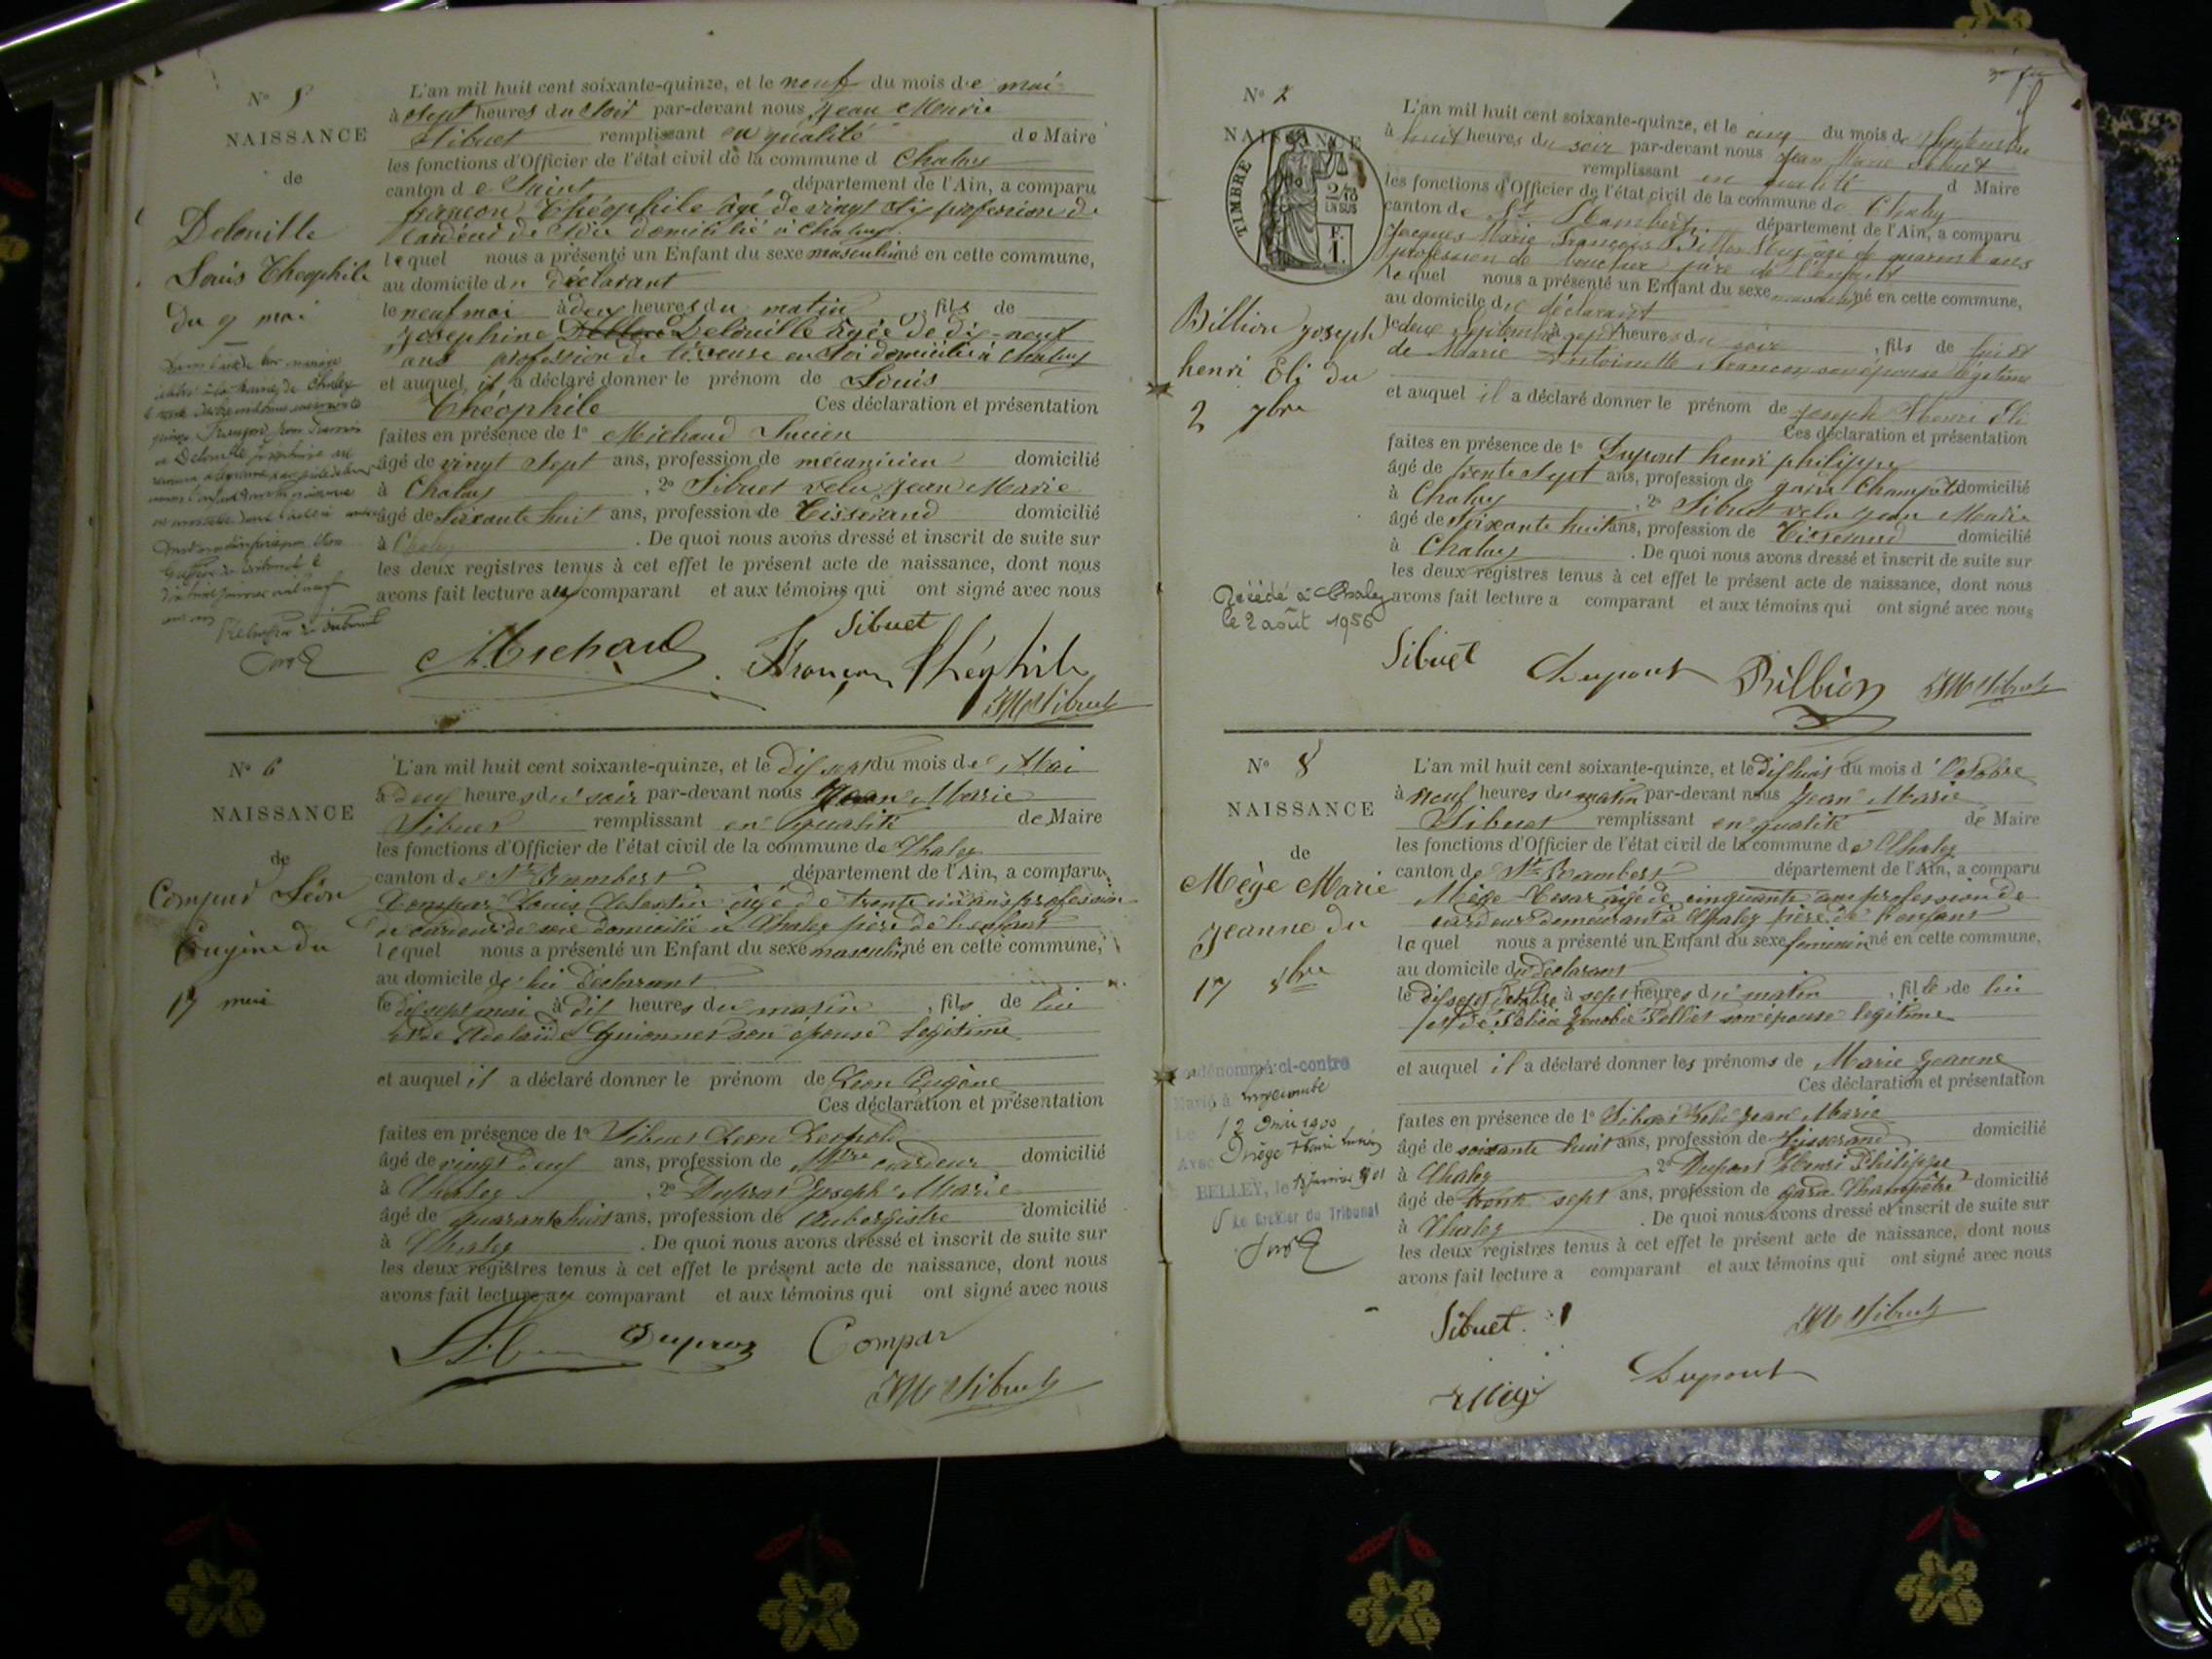 N° 5
NAISSANCE
de
Delouille
Louis Théophile
du 9 mai
L'an mil huit cent soixante-quinze, et le neuf du mois de mai
à sept heures du soir par-devant nous Jean Marie
Sibuet remplissant en qualité de Maire
les fonctions d'Officier de l'état civil de la commune d Chaley
canton de Saint département de l'Ain, a comparu
françon Théophile âgé de vingt six profession de
cardeur de soie domicilié à Chaley
lequel nous a présenté un Enfant du sexe masculin né en cette commune,
au domicile du déclarant
le neuf mai à deux heures du matin, fils de
Josephine Delouille âgée de dix-neuf
ans profession de tisseuse en soi domiciliée à Chaley
et auquel il a déclaré donner le prénom de Louis
Théophile Ces déclaration et présentation
faites en présence de 1° Michaud Lucien
âgé de vingt sept ans, profession de mécanicien domicilié
à Chaley, 2° Sibuet velu Jean Marie
âgé de soixante huit ans, profession de Tisserand domicilié
à Chaley. De quoi nous avons dressé et inscrit de suite sur
les deux registres tenus à cet effet le présent acte de naissance, dont nous
avons fait lecture au comparant et aux témoins qui ont signé avec nous
Sibuet
Michaud Françon Théophile
JM Sibuet
N° 6
NAISSANCE
de
Compar Léon
Eugène du
17 mai
L'an mil huit cent soixante-quinze, et le dix sept du mois de Mai
à deux heures du soir par-devant nous Jean Marie
Sibuet remplissant en qualité de Maire
les fonctions d'Officier de l'état civil de la commune de Chaley
canton de St Rambert département de l'Ain, a comparu
Compar Louis âgé de trente ans profession
de cardeur de soie domicilié à Chaley père de l'enfant
lequel nous a présenté un Enfant du sexe masculin né en cette commune,
au domicile de lui Déclarant
le dix sept mai à dix heures du matin, fils de lui
et de Adelaïde Guionnet son épouse légitime
et auquel il a déclaré donner le prénom de Léon Eugène
Ces déclaration et présentation
faites en présence de 1° Sibuet Léon Leopold
âgé de vingt deux ans, profession de cardeur domicilié
à Chaley, 2° Dupraz Joseph Marie
âgé de quarante huit ans, profession de Aubergiste domicilié
à Chaley. De quoi nous avons dressé et inscrit de suite sur
les deux registres tenus à cet effet le présent acte de naissance, dont nous
avons fait lecture au comparant et aux témoins qui ont signé avec nous
Dupraz Compar
JM Sibuet
N°
NAISSANCE
TIMBRE
Billion Joseph
henri Eli du
2 7bre
L'an mil huit cent soixante-quinze, et le cinq du mois de Septembre
à huit heures du soir par-devant nous Jean Marie Sibuet
remplissant en qualité d Maire
les fonctions d'Officier de l'état civil de la commune de Chaley
canton de St Rambert département de l'Ain, a comparu
Jacques Marie François Billion âgé de quarante ans
profession de père de l'enfant
lequel nous a présenté un Enfant du sexe masculin né en cette commune,
au domicile de déclarant
le deux Septembre à sept heures du soir, fils de lui et
de Marie Antoinette Françon son épouse légitime
et auquel il a déclaré donner le prénom de Joseph Henri Eli
Ces déclaration et présentation
faites en présence de 1° Dupont henri philippe
âgé de trente sept ans, profession de garde Champêt domicilié
à Chaley, 2° Sibuet velu Jean Marie
âgé de soixante huit ans, profession de Tisserand domicilié
à Chaley. De quoi nous avons dressé et inscrit de suite sur
les deux registres tenus à cet effet le présent acte de naissance, dont nous
avons fait lecture a comparant et aux témoins qui ont signé avec nous
Décédé à Chaley
le 2 août 1956
Sibuet Dupont Billion JM Sibuet
N° 8
NAISSANCE
de
Mège Marie
Jeanne du
17 8bre
L'an mil huit cent soixante-quinze, et le dix huit du mois d'Octobre
à neuf heures du matin par-devant nous Jean Marie
Sibuet remplissant en qualité de Maire
les fonctions d'Officier de l'état civil de la commune de Chaley
canton de St Rambert département de l'Ain, a comparu
Mège Cesar âgé de cinquante ans profession de
cardeur demeurant à Chaley père de l'enfant
lequel nous a présenté un Enfant du sexe feminin né en cette commune,
au domicile du Déclarant
le dix sept Octobre à sept heures du matin, fille de lui
et de Zenobie son épouse légitime
et auquel il a déclaré donner les prénoms de Marie Jeanne
Ces déclaration et présentation
faites en présence de 1° Sibuet Velu Jean Marie
âgé de soixante huit ans, profession de Tisserand domicilié
à Chaley, 2° Dupont Henri Philippe
âgé de trente sept ans, profession de garde Champêtre domicilié
à Chaley. De quoi nous avons dressé et inscrit de suite sur
les deux registres tenus à cet effet le présent acte de naissance, dont nous
avons fait lecture a comparant et aux témoins qui ont signé avec nous
ci-contre
Marié à
Le 12 mai 1900
Avec
BELLEY, le Janvier 1901
Le Greffier du Tribunal
Sibuet JM Sibuet
Dupont
Mège